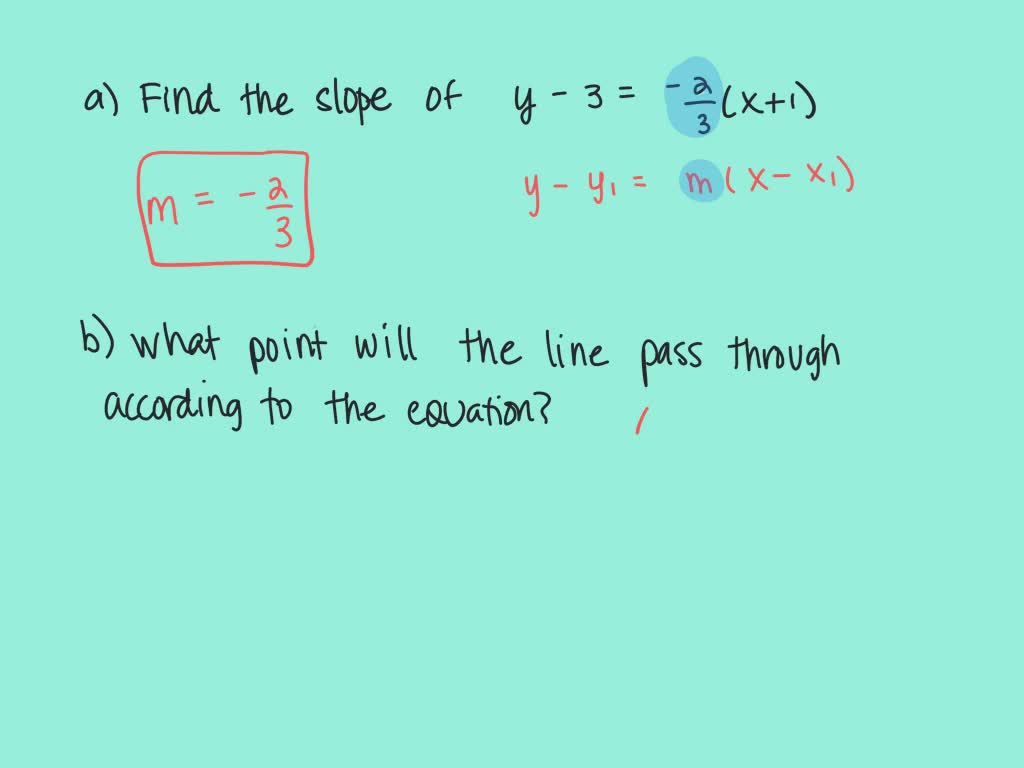 a) Find the slope of y - 3 = -2/3 (x+1)
m = -2/3
y - y₁ = m (x - x₁)
b) what point will the line pass through
according to the equation? (